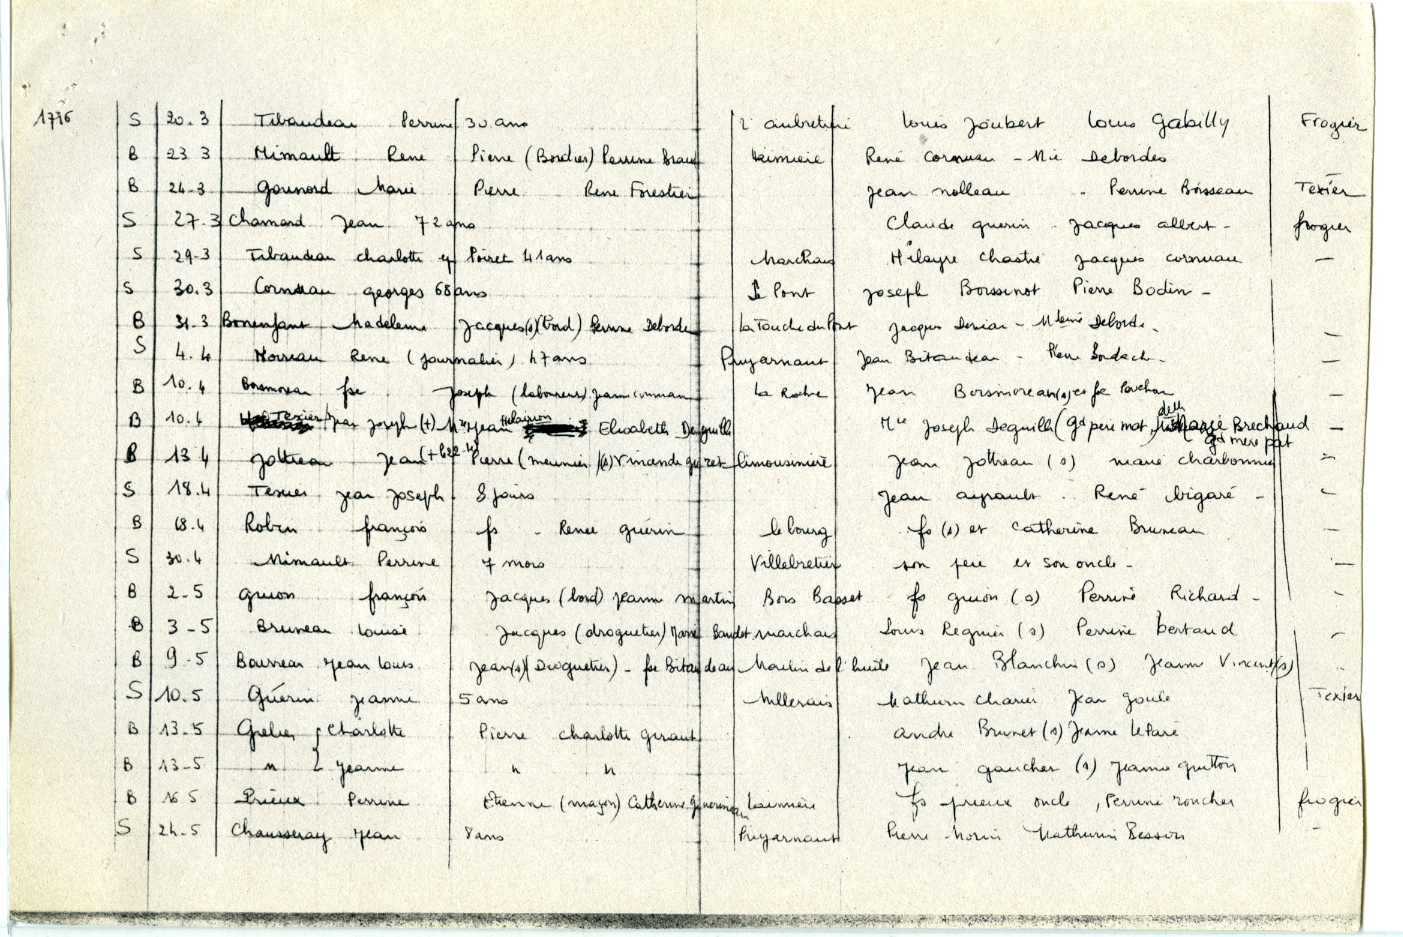 1736 S 20.3 Tibaudeau Perrine 30 ans L'aubretrie Louis Joubert Louis Gabilly Frogier
B 23 3 Mimault René Pierre (Bordier) Perrine Braud René Cornuau - Mie Debordes
B 24-3 Gounord Marie Pierre Rene Forestier Jean Nolleau - Perrine Boisseau Texier
S 27.3 Chamard Jean 72 ans Claude Guerin - Jacques Albert - Frogier
S 29-3 Tibaudeau Charlotte ep Poiret 41 ans Marchais Hilayre Chastié Jacques Cornuau —
S 30.3 Cornuau Georges 68 ans Le Pont Joseph Boissinot Pierre Bodin -
B 31-3 Bonenfant Madeleine Jacques(s)(bord) Perrine Deborde La Touche du Pont Jacques - Mleine Deborde - —
S 4.4 Moreau Rene (journalier) 47 ans Puyarnaut Jean Bitaudeau - Pierre —
B 10.4 Boismoreau fse Joseph (laboureur) Jeanne La Roche Jean Boismoreau(s) et fse —
B 10.4 Texier Jean Joseph (+) Mre Jean Elisabeth Deguille Mre Joseph Deguille (gd père mat), delle Marie Brechaud gd mère pat —
B 13 4 Jottreau Jean (+ 622-4) Pierre (meunier)(s) limousinière Jean Jottreau (s) Marie Charbonnier —
S 18.4 Texier Jean Joseph 8 jours Jean Ayrault - René Bigaré - —
B 18.4 Robin François fs - Renée Guérin le bourg fs (s) et Catherine Bruneau —
S 30.4 Mimault Perrine 7 mois Villebretier son père et son oncle - —
B 2-5 Guion François Jacques (bord) Jeanne Martin Bois Basset fs Guion (s) Perrine Richard - -
B 3-5 Bruneau Louise Jacques (droguetier) Marie Baudet Marchais Louis Regnier (s) Perrine Bertaud -
B 9-5 Bourreau Jean Louis Jean(s)(Droguetier) - fse Bitaudeau Moulin de l'huile Jean Blanchin (s) Jeanne Vincent(s)
S 10.5 Guérin Jeanne 5 ans Millerais Mathurin Jean Goulé Texier
B 13-5 Grelier { Charlotte Pierre Charlotte Giraut André Brunet (s) Jeanne
B 13-5 " { Jeanne " " Jean Gaucher (s) Jeanne Guitton
B 16 5 Prieux Perrine Etienne (maçon) Catherine fs Prieux oncle, Perrine Rocher Frogier
S 24-5 Chausseray Jean 8 ans Puyarnaut Pierre Morin Mathurin Besson -